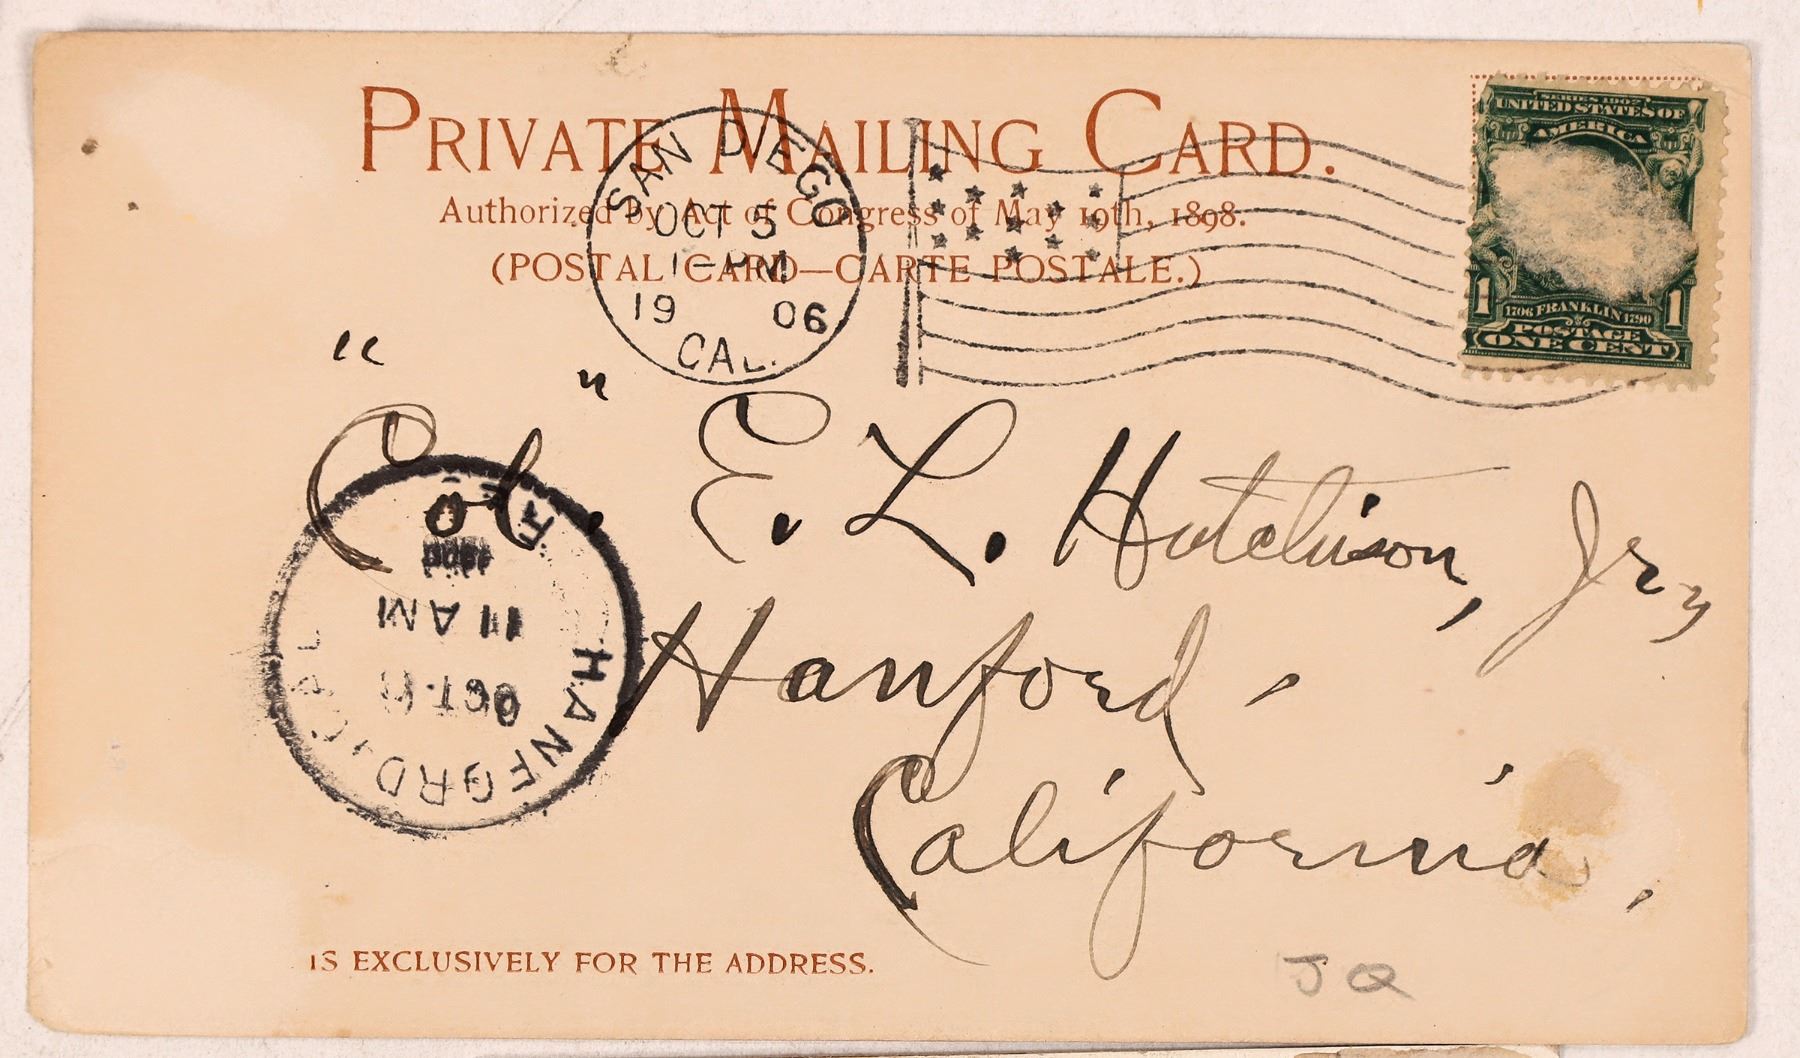 PRIVATE MAILING CARD.
Authorized by Act of Congress of May 19th, 1898.
(POSTAL CARD—CARTE POSTALE.)
SAN DIEGO
OCT 5
1-PM
19 06
CAL.
SERIES 1902
UNITED STATES OF
AMERICA
1 1
1706 FRANKLIN 1790
POSTAGE
ONE CENT
"Col." E. L. Hutchison, Jr,
Hanford,
California,
HANFORD, CAL.
OCT
11 AM
IS EXCLUSIVELY FOR THE ADDRESS.
JQ